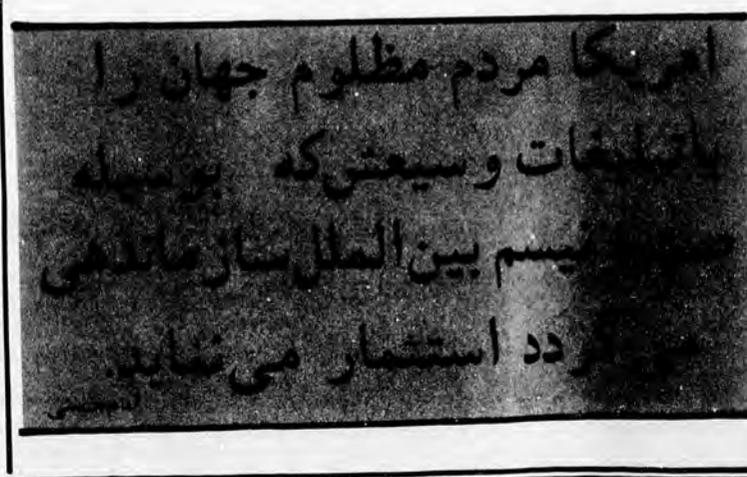 امریکا مردم مظلوم جهان را
باتبلیغات وسیعش‌که بوسیله
صهیونیسم بین‌الملل‌سازماندهی
می گردد استثمار می‌نماید.